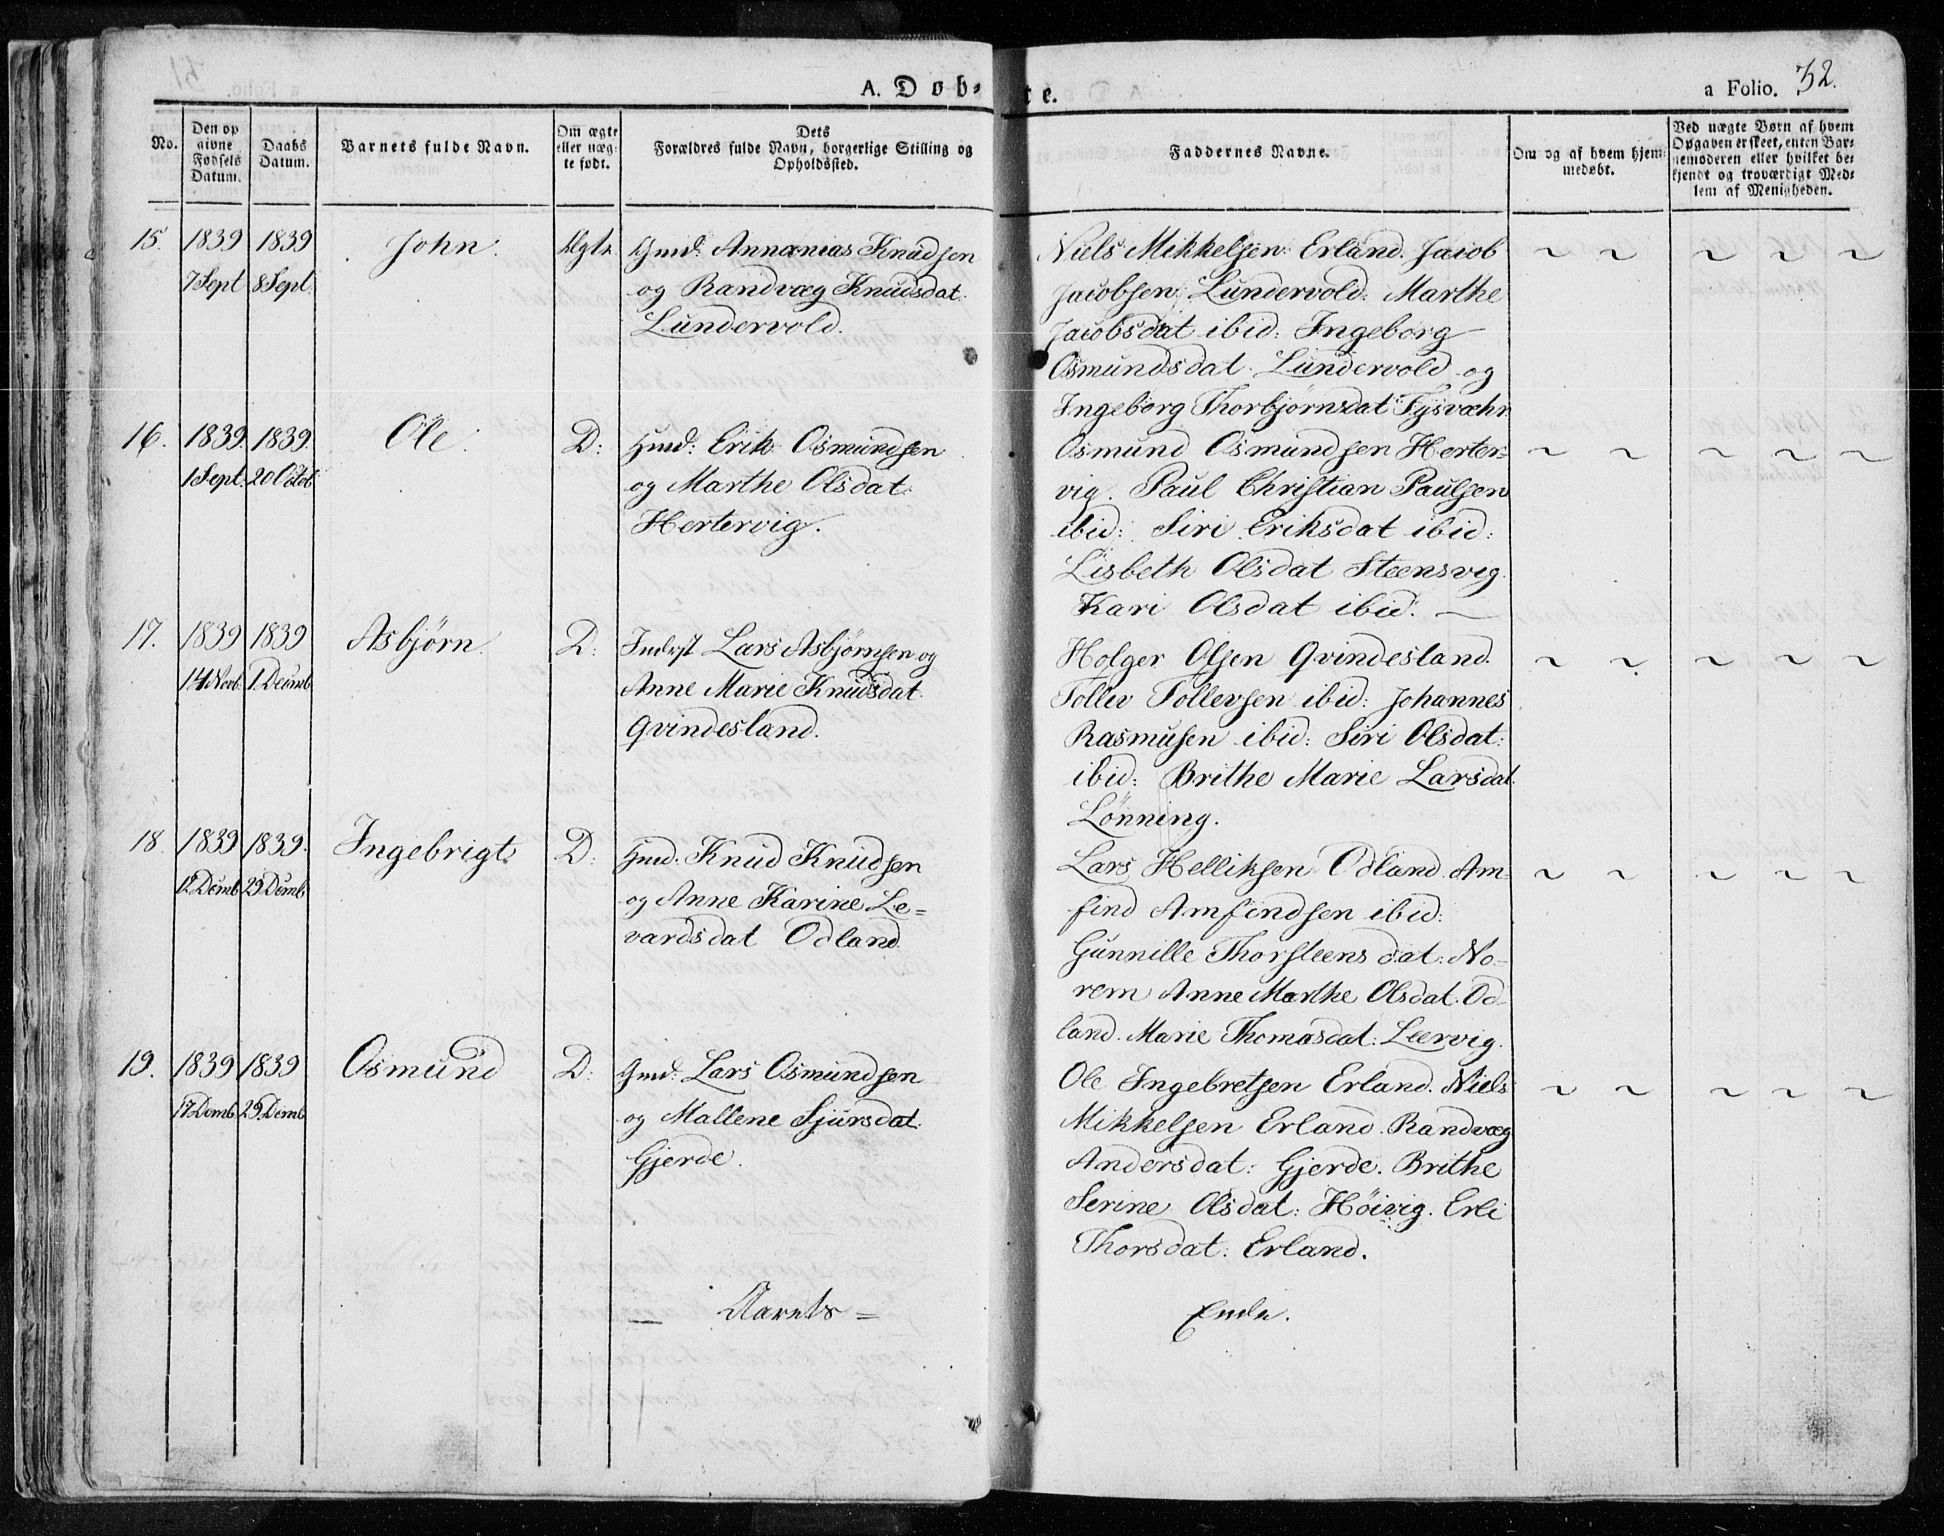 A. Døb-
te.
a Folio. 32.
No.
Den op
givne
Fødsels
Datum.
Daabs
Datum.
Barnets fulde Navn.
Om ægte
eller uæg-
te født.
Dets
Forældres fulde Navn, borgerlige Stilling og
Opholdssted.
Faddernes Navne.
Om og af hvem hjem-
medøbt.
Ved uægte Børn af hvem
Opgaven er skeet, enten Bar-
nemoderen eller hvilket be-
kjendt og troværdigt Med-
lem af Menigheden.
15.
1839
7 Sept
1839
8 Sept.
John.
Ægte
Gmd: Annanias Knudsen
og Randvæg Knudsdat.
Lundervold.
Niels Mikkelsen: Erland. Jacob
Jacobsen, Lundervold: Marthe
Jacobsdat ibid: Ingeborg
Osmundsdat. Lundervold og
Ingeborg Thorbjørnsdat Tysvæhr
16.
1839.
1 Sept.
1839.
20 Octob
Ole
D:
Hmd: Erik Osmundsen
og Marthe Olsdat:
Hertervig.
Osmund Osmundsen Herter-
vig. Paul Christian Paulsen
ibid: Siri Eriksdat ibid:
Lisbeth Olsdat Steensvig.
Kari Olsdat ibid: —
17.
1839
14 Novb.
1839
1 Decmb
Asbjørn
D:
Inderst Lars Asbjørnsen og
Anne Marie Knudsdat.
Qvindesland.
Holger Olsen Qvindesland.
Tollev Tollevsen ibid: Johannes
Rasmusen ibid: Siri Olsdat:
ibid: Brithe Marie Larsdat.
Lønning.
18
1839
12 Decmb
1839.
29 Decmb
Ingebrigt
D:
Hmd: Knud Knudsen
og Anne Karine Le=
vardsdat Odland
Lars Helliksen Odland. Am-
find Amfindsen ibid:
Gunnille Thorsteens dat: No-
rem Anne Marthe Olsdat. Od-
land. Marie Thomasdat: Leervig.
19.
1839
17 Decmb
1839
29 Decmb
Osmund
D:
Gmd: Lars Osmundsen
og Mallene Sjursdat.
Gjerde.
Ole Ingebretsen Erland. Niels
Mikkelsen Erland. Randvæg
Andersdat: Gjerde. Brithe
Serine Olsdat: Høivig. Erli
Thorsdat: Erland.
— Aarets =
Ende.